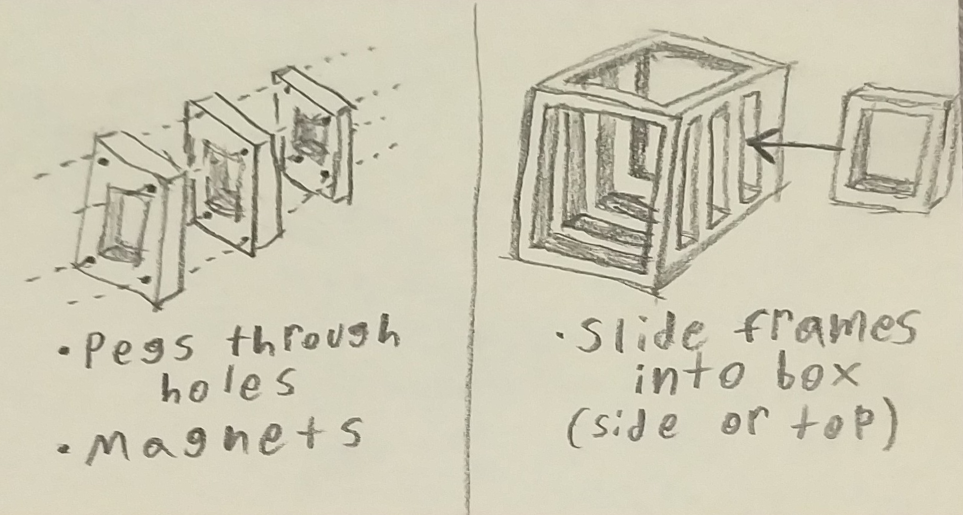 • Pegs through
holes
• Magnets
• Slide frames
into box
(side or top)